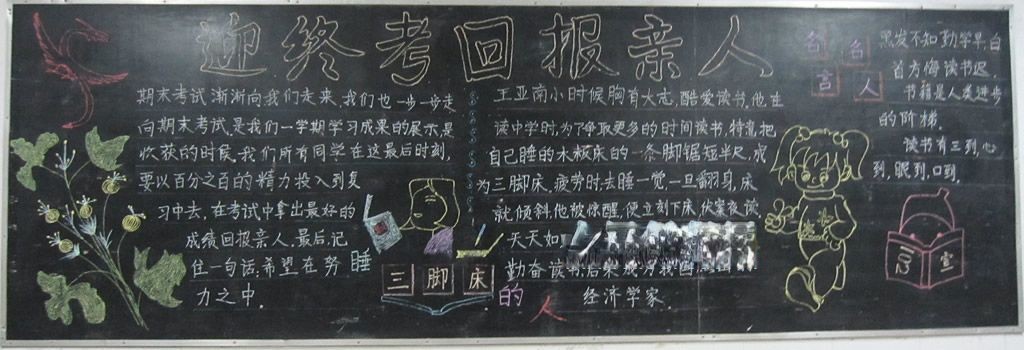 迎终考回报亲人
期末考试渐渐向我们走来,我们也一步一步走
向期末考试是我们一学期学习成果的展示是
收获的时候,我们所有同学在这最后时刻,
要以百分之百的精力投入到复
习中去,在考试中拿出最好的
成绩回报亲人,最后,记
住一句话:希望在努
力之中.
睡
三脚床
的人
王亚南小时候胸有大志,酷爱读书,他在
读中学时,为了争取更多的时间读书,特意把
自己睡的木板床的一条脚锯短半尺,成
为三脚床,疲劳时,去睡一觉,一旦翻身,床
就倾斜,他被惊醒,便立刻下床,伏案夜读,
天天如
勤奋读书,后来成为我国
经济学家.
名人名言
黑发不知勤学早,白
首方悔读书迟.
书籍是人类进步
的阶梯.
读书有三到,心
到,眼到,口到,